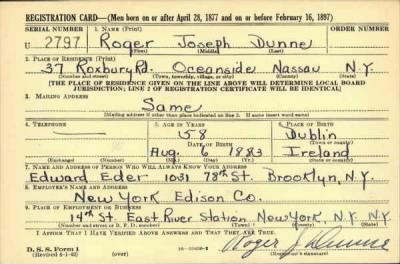 REGISTRATION CARD—(Men born on or after April 28, 1877 and on or before February 16, 1897)
SERIAL NUMBER 1. NAME (Print)
U 2797 Roger Joseph Dunne
(First) (Middle) (Last)
2. PLACE OF RESIDENCE (Print)
37 Roxbury Rd. Oceanside Nassau N.Y.
(Number and street) (Town, township, village, or city) (County) (State)
[THE PLACE OF RESIDENCE GIVEN ON THE LINE ABOVE WILL DETERMINE LOCAL BOARD
JURISDICTION; LINE 2 OF REGISTRATION CERTIFICATE WILL BE IDENTICAL]
3. MAILING ADDRESS
Same
[Mailing address if other than place indicated on line 2. If same insert word same]
4. TELEPHONE 5. AGE IN YEARS 6. PLACE OF BIRTH
— 58 Dublin
DATE OF BIRTH (Town or county)
Aug. 6 1883 Ireland
(Exchange) (Number) (Mo.) (Day) (Yr.) (State or country)
7. NAME AND ADDRESS OF PERSON WHO WILL ALWAYS KNOW YOUR ADDRESS
Edward Eder 1031 78th St. Brooklyn, N.Y.
8. EMPLOYER'S NAME AND ADDRESS
New York Edison Co.
9. PLACE OF EMPLOYMENT OR BUSINESS
14th St. East River Station New York, N.Y. N.Y.
(Number and street or R. F. D. number) (Town) (County) (State)
I AFFIRM THAT I HAVE VERIFIED ABOVE ANSWERS AND THAT THEY ARE TRUE.
D. S. S. Form 1
(Revised 4-1-42) (over) Roger J Dunne